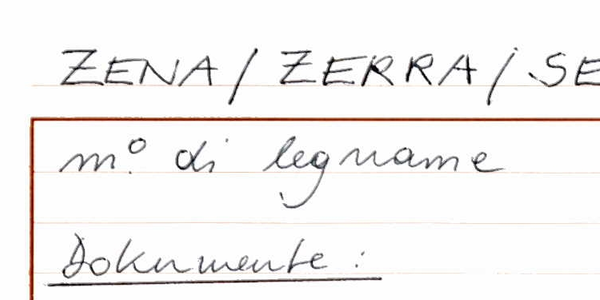 ZENA / ZERRA / SE
m.º di legname
Dokumente :